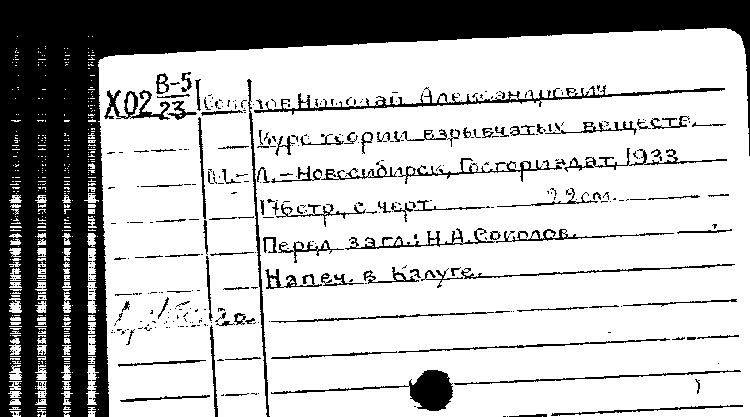 Х02 В-5/23 Соколов, Николай Александрович
Курс теории взрывчатых веществ.
М.-Л.-Новосибирск, Госгориздат, 1933
176стр., с черт. 22см.
Перед загл.: Н.А.Соколов.
Напеч. в Калуге.